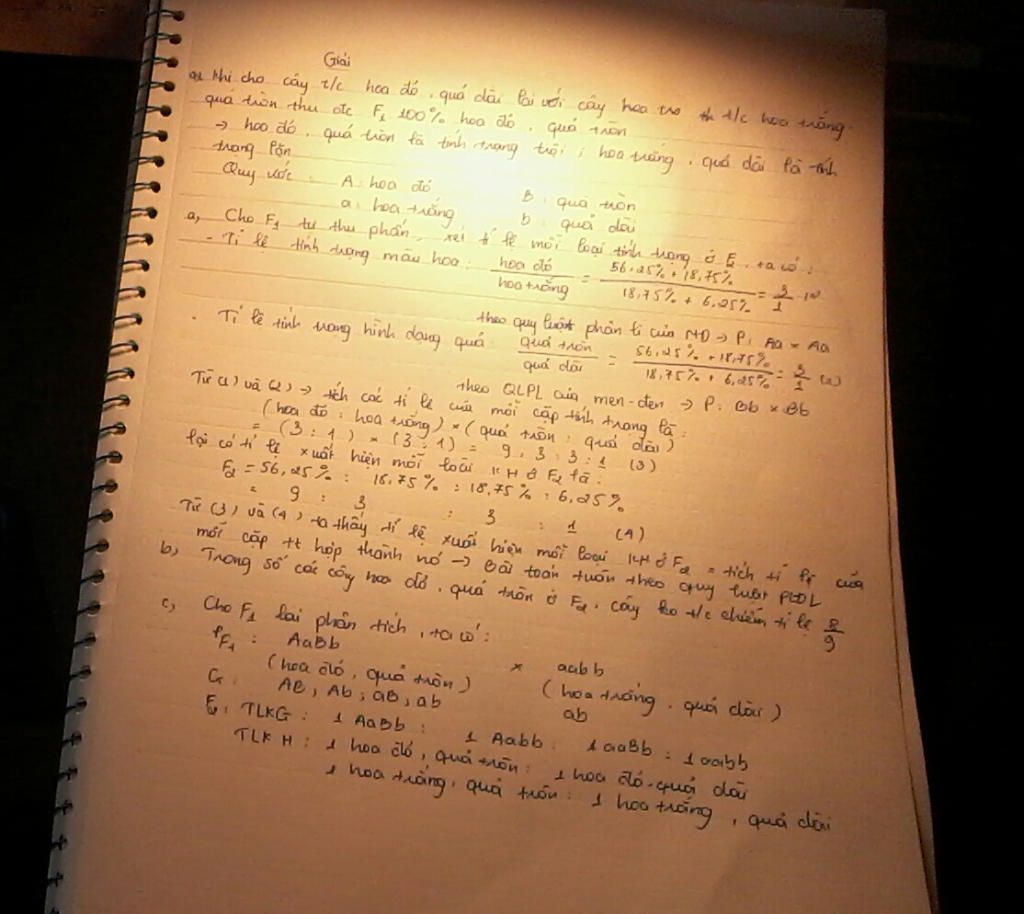 Giải
a, Khi cho cây t/c hoa đỏ, quả dài lai với cây hoa t/c hoa trắng.
quả tròn thu đc F1 100% hoa đỏ, quả tròn
→ hoa đỏ, quả tròn là tính trạng trội ; hoa trắng, quả dài là tính
trạng lặn
Quy ước : A : hoa đỏ B : quả tròn
a : hoa trắng b : quả dài
a, Cho F1 tự thụ phấn, xét tỉ lệ mỗi loại tính trạng ở F2, ta có :
- Tỉ lệ tính trạng màu hoa : hoa đỏ / hoa trắng = 56,25% + 18,75% / 18,75% + 6,25% = 3/1 (1)
theo quy luật phân li của MĐ → P : Aa × Aa
- Tỉ lệ tính trạng hình dạng quả : quả tròn / quả dài = 56,25% + 18,75% / 18,75% + 6,25% = 3/1 (2)
theo QLPL của men-đen → P : Bb × Bb
Từ (1) và (2) → tích các tỉ lệ của mỗi cặp tính trạng là :
(hoa đỏ : hoa trắng) × (quả tròn : quả dài)
= (3 : 1) × (3 : 1) = 9 : 3 : 3 : 1 (3)
lại có tỉ lệ xuất hiện mỗi loại KH ở F2 là :
F2 = 56,25% : 18,75% : 18,75% : 6,25%
= 9 : 3 : 3 : 1 (4)
Từ (3) và (4) ta thấy tỉ lệ xuất hiện mỗi loại KH ở F2 = tích tỉ lệ của
mỗi cặp tt hợp thành nó → Bài toán tuân theo quy luật PLĐL
b, Trong số các cây hoa đỏ, quả tròn ở F2, cây ko t/c chiếm tỉ lệ 8/9
c, Cho F1 lai phân tích, ta có :
PF1 : AaBb × aabb
(hoa đỏ, quả tròn) (hoa trắng, quả dài)
G : AB, Ab, aB, ab ab
TLKG : 1 AaBb : 1 Aabb : 1 aaBb : 1 aabb
TLKH : 1 hoa đỏ, quả tròn : 1 hoa đỏ, quả dài
1 hoa trắng, quả tròn : 1 hoa trắng, quả dài